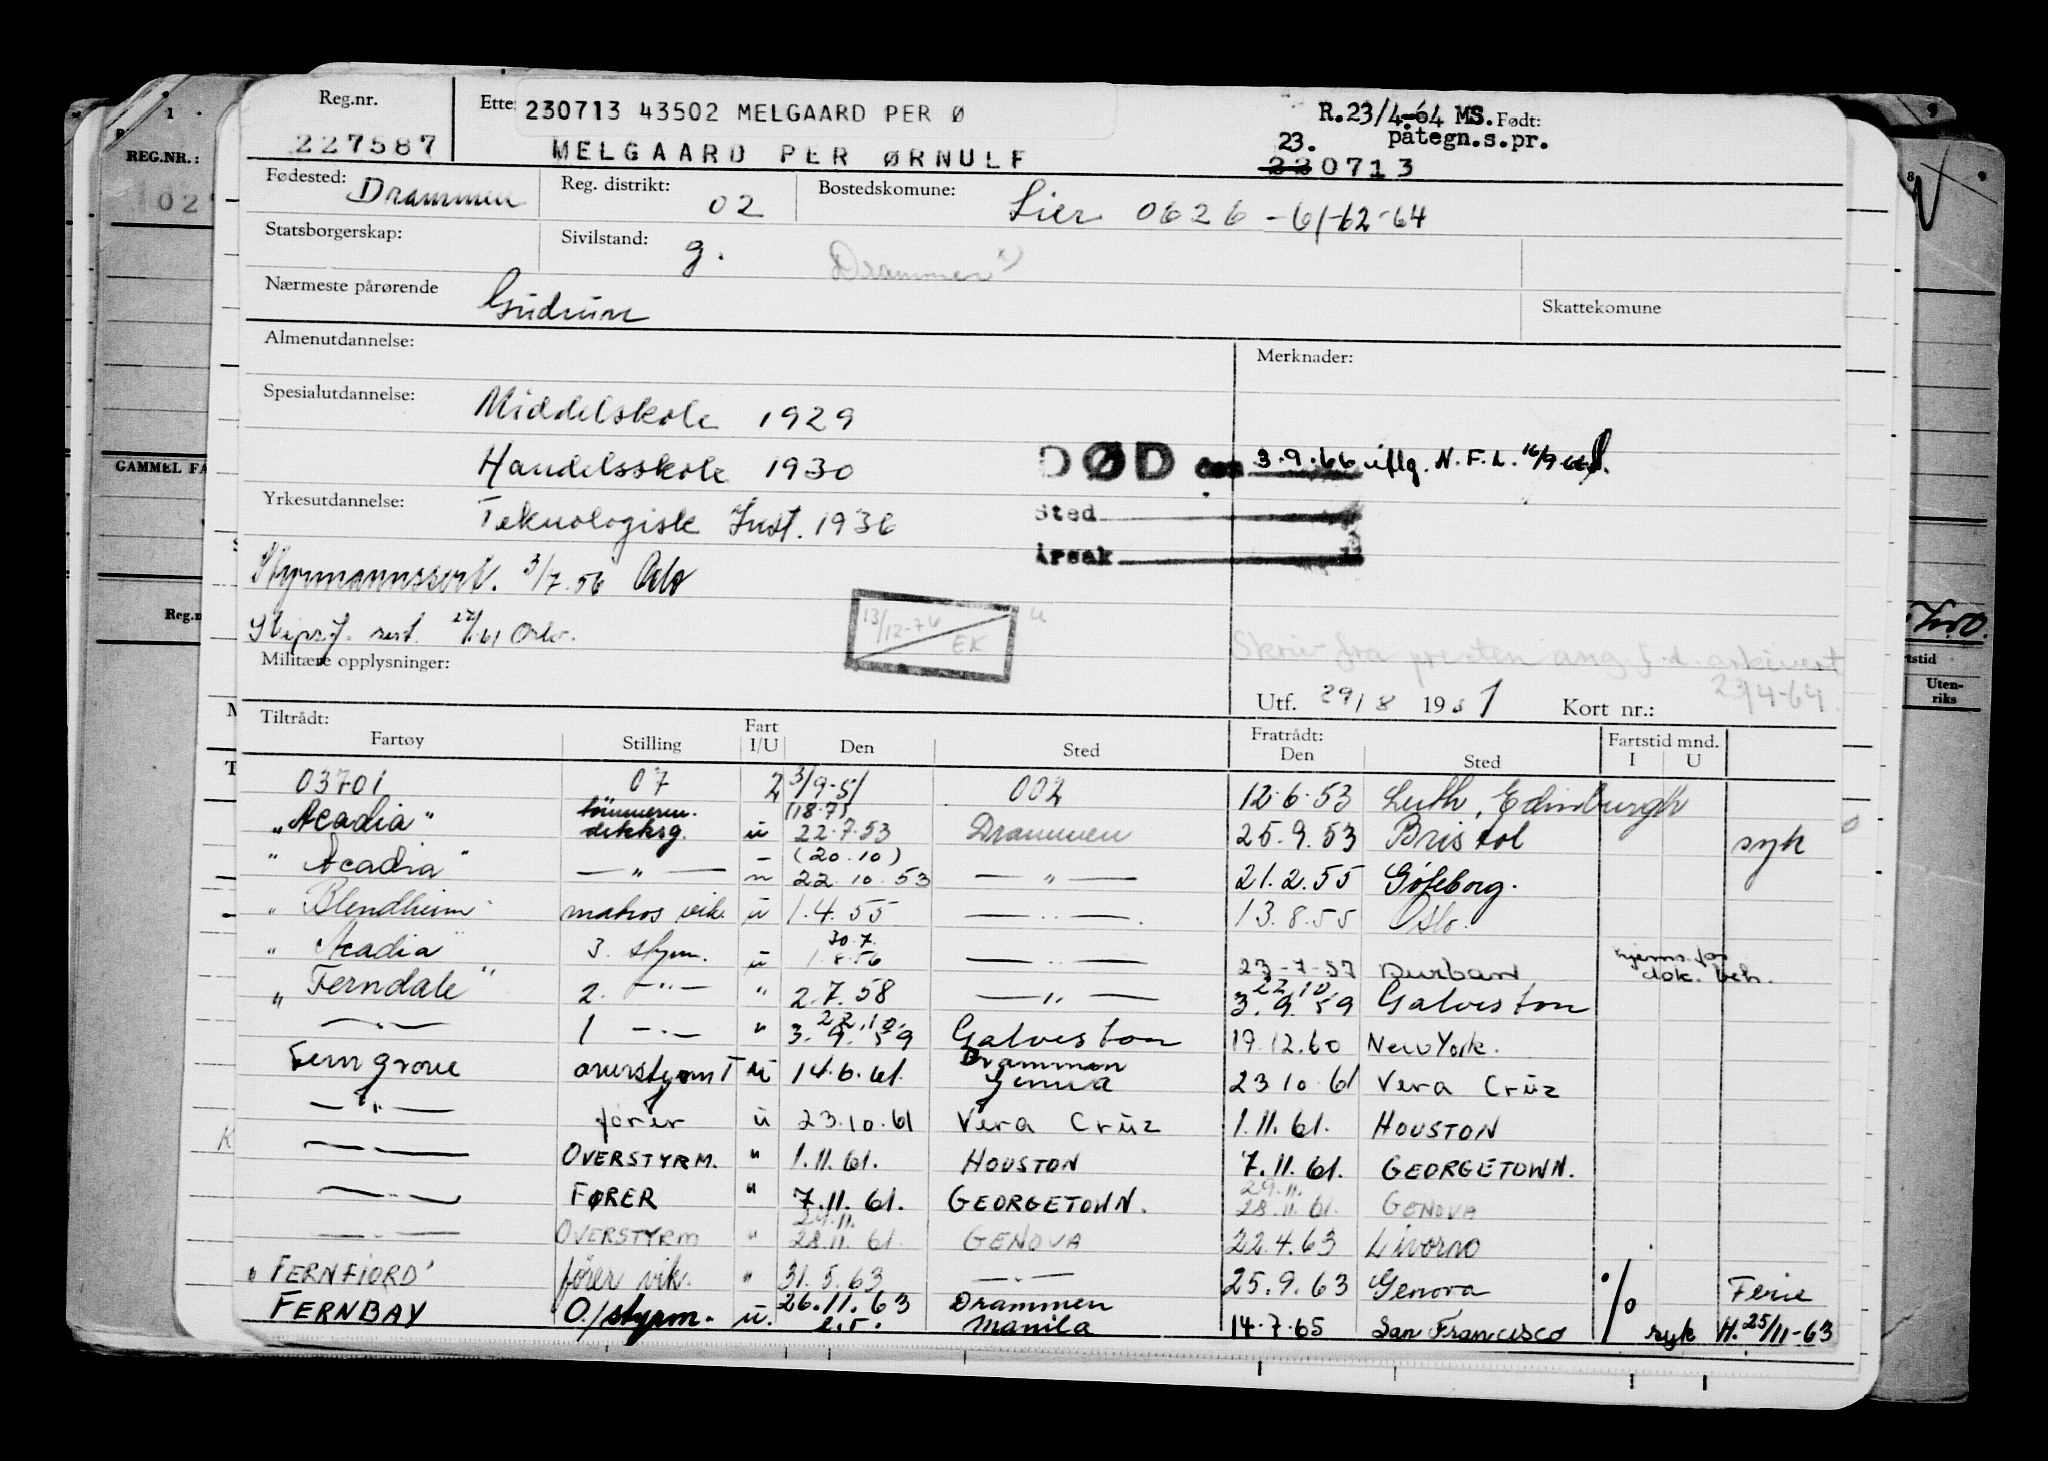 Reg.nr.
227587
Ette
230713 43502 MELGAARD PER Ø
MELGAARD PER ØRNULF
R.23/4-64 MS. Født:
påtegn.s.pr.
23.
220713
Fødested: Drammen
Reg. distrikt: 02
Bostedskomune: Lier 0626 -61-62-64
Statsborgerskap:
Sivilstand: g.
Drammen
Nærmeste pårørende
Gudrun
Skattekomune
Almenutdannelse:
Merknader:
Spesialutdannelse:
Middelskole 1929
Handelsskole 1930
DØD den 3.9.66 iflg. N.F.L. 16/9-66
Yrkesutdannelse:
Teknologisk Inst. 1936
Sted
Årsak
Styrmannssert. 3/7.56 Oslo
Skipsf. sert. 61 Oslo.
13/12-74
EK
Skriv fra presten ang. f.d. arkivert
23/4-64.
Militære opplysninger:
Utf. 29/8 1951
Kort nr.:
Tiltrådt:
Fartøy Stilling Fart I/U Den Sted
Fratrådt:
Den Sted
Fartstid mnd.
I U
03701 07 2 3/9-51 002 12.6.53 Leith, Edinburgh
„Acadia" tømmerm. dekksg. u (18.7) 22.7.53 Drammen 25.9.53 Bristol syk
" Acadia" — „ — (20.10) 22.10.53 — „ — 21.2.55 Gøteborg.
" Blendheim" matros vik. u 1.4.55 — „ — 13.8.55 Oslo.
" Acadia" 3. styrm. u 30.7. 1.8.56 — „ — 23-7-57 Durban hjems. for dok. beh.
„ Ferndale" 2. — " — " 2.7.58 — „ — 22.10. 3.9.59 Galveston
— „ — 1 — „ — " 22.10. 3.9.59 Galveston 19.12.60 New York.
Ferngrove overstyrm I u 14.6.61. Drammen Genua 23.10.61 Vera Crüz
— " — fører u 23.10.61 Vera Crüz 1.11.61. HOUSTON
— „ — OVERSTYRM. " 1.11.61. HOUSTON 7.11.61. GEORGETOWN.
— „ — FØRER " 7.11.61. GEORGETOWN. 29.11. 28.11.61. GENOVA
— „ — OVERSTYRM " 29.11. 28.11.61. GENOVA 22.4.63 Livorno
" FERNFIORD' fører vik. " 31.5.63 — „ — 25.9.63 Genova Ferie
FERNBAY O/styrm. u. 26.11.63 Drammen Manila 14.7.65 San Francisco syk H. 25/11-63
REG.NR.:
102
GAMMEL FA
Reg.n
rtstid
Uten-
riks